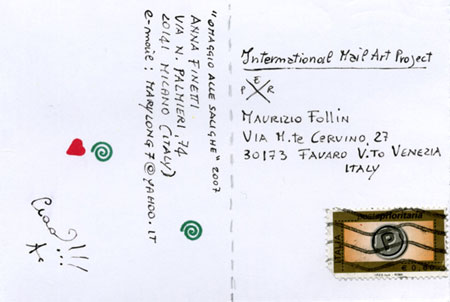 "OMAGGIO ALLE SALIGHE" 2007
ANNA FINETTI
VIA N. PALMIERI, 74
20141 MILANO (ITALY)
e-mail: MARYLONG7@YAHOO.IT
Ciao!!!
International Mail Art Project
P E R
MAURIZIO FOLLIN
VIA M.te CERVINO, 27
30173 FAVARO V.TO VENEZIA
ITALY
Posteprioritaria
ITALIA
P
€ 0,60